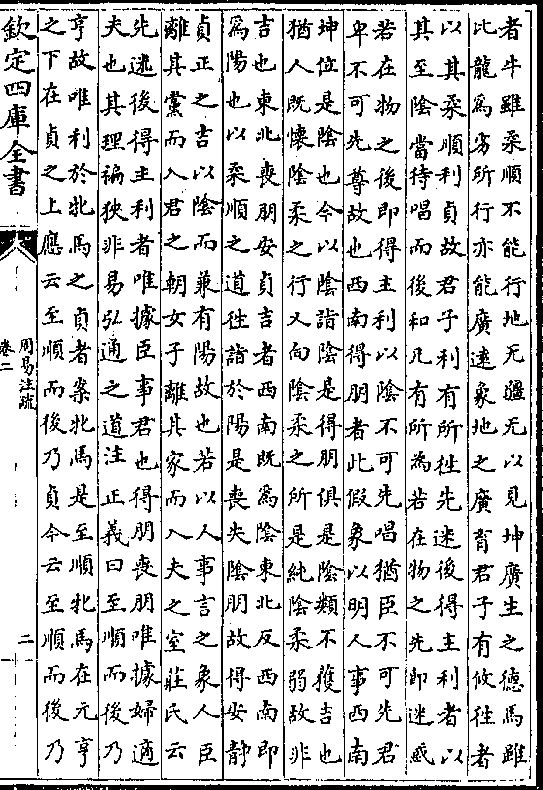 者牛雖柔順不能行地无疆无以見坤廣生之德馬雖
比龍為劣所行亦能廣逺象地之廣育君子有攸往者
以其柔順利貞故君子利有所往先迷後得主利者以
其至陰當待唱而後和凡有所為若在物之先即迷惑
若在物之後即得主利以陰不可先唱猶臣不可先君
卑不可先尊故也西南得朋者此假象以明人事西南
坤位是陰也今以陰詣陰是得朋俱是陰類不獲吉也
猶人既懐陰柔之行又向陰柔之所是純陰柔弱故非
吉也東北喪朋安貞吉者西南既為陰東北反西南即
為陽也以柔順之道往詣於陽是喪失陰朋故得安静
貞正之吉以陰而兼有陽故也若以人事言之象人臣
離其黨而入君之朝女子離其家而入夫之室莊氏云
先迷後得主利者唯據臣事君也得朋喪朋唯據婦適
夫也其理褊狹非易弘通之道注正義曰至順而後乃
亨故唯利於牝馬之貞者案牝馬是至順牝馬在元亨
之下在貞之上應云至順而後乃貞今云至順而後乃
欽定四庫全書
周易注疏
卷二
二